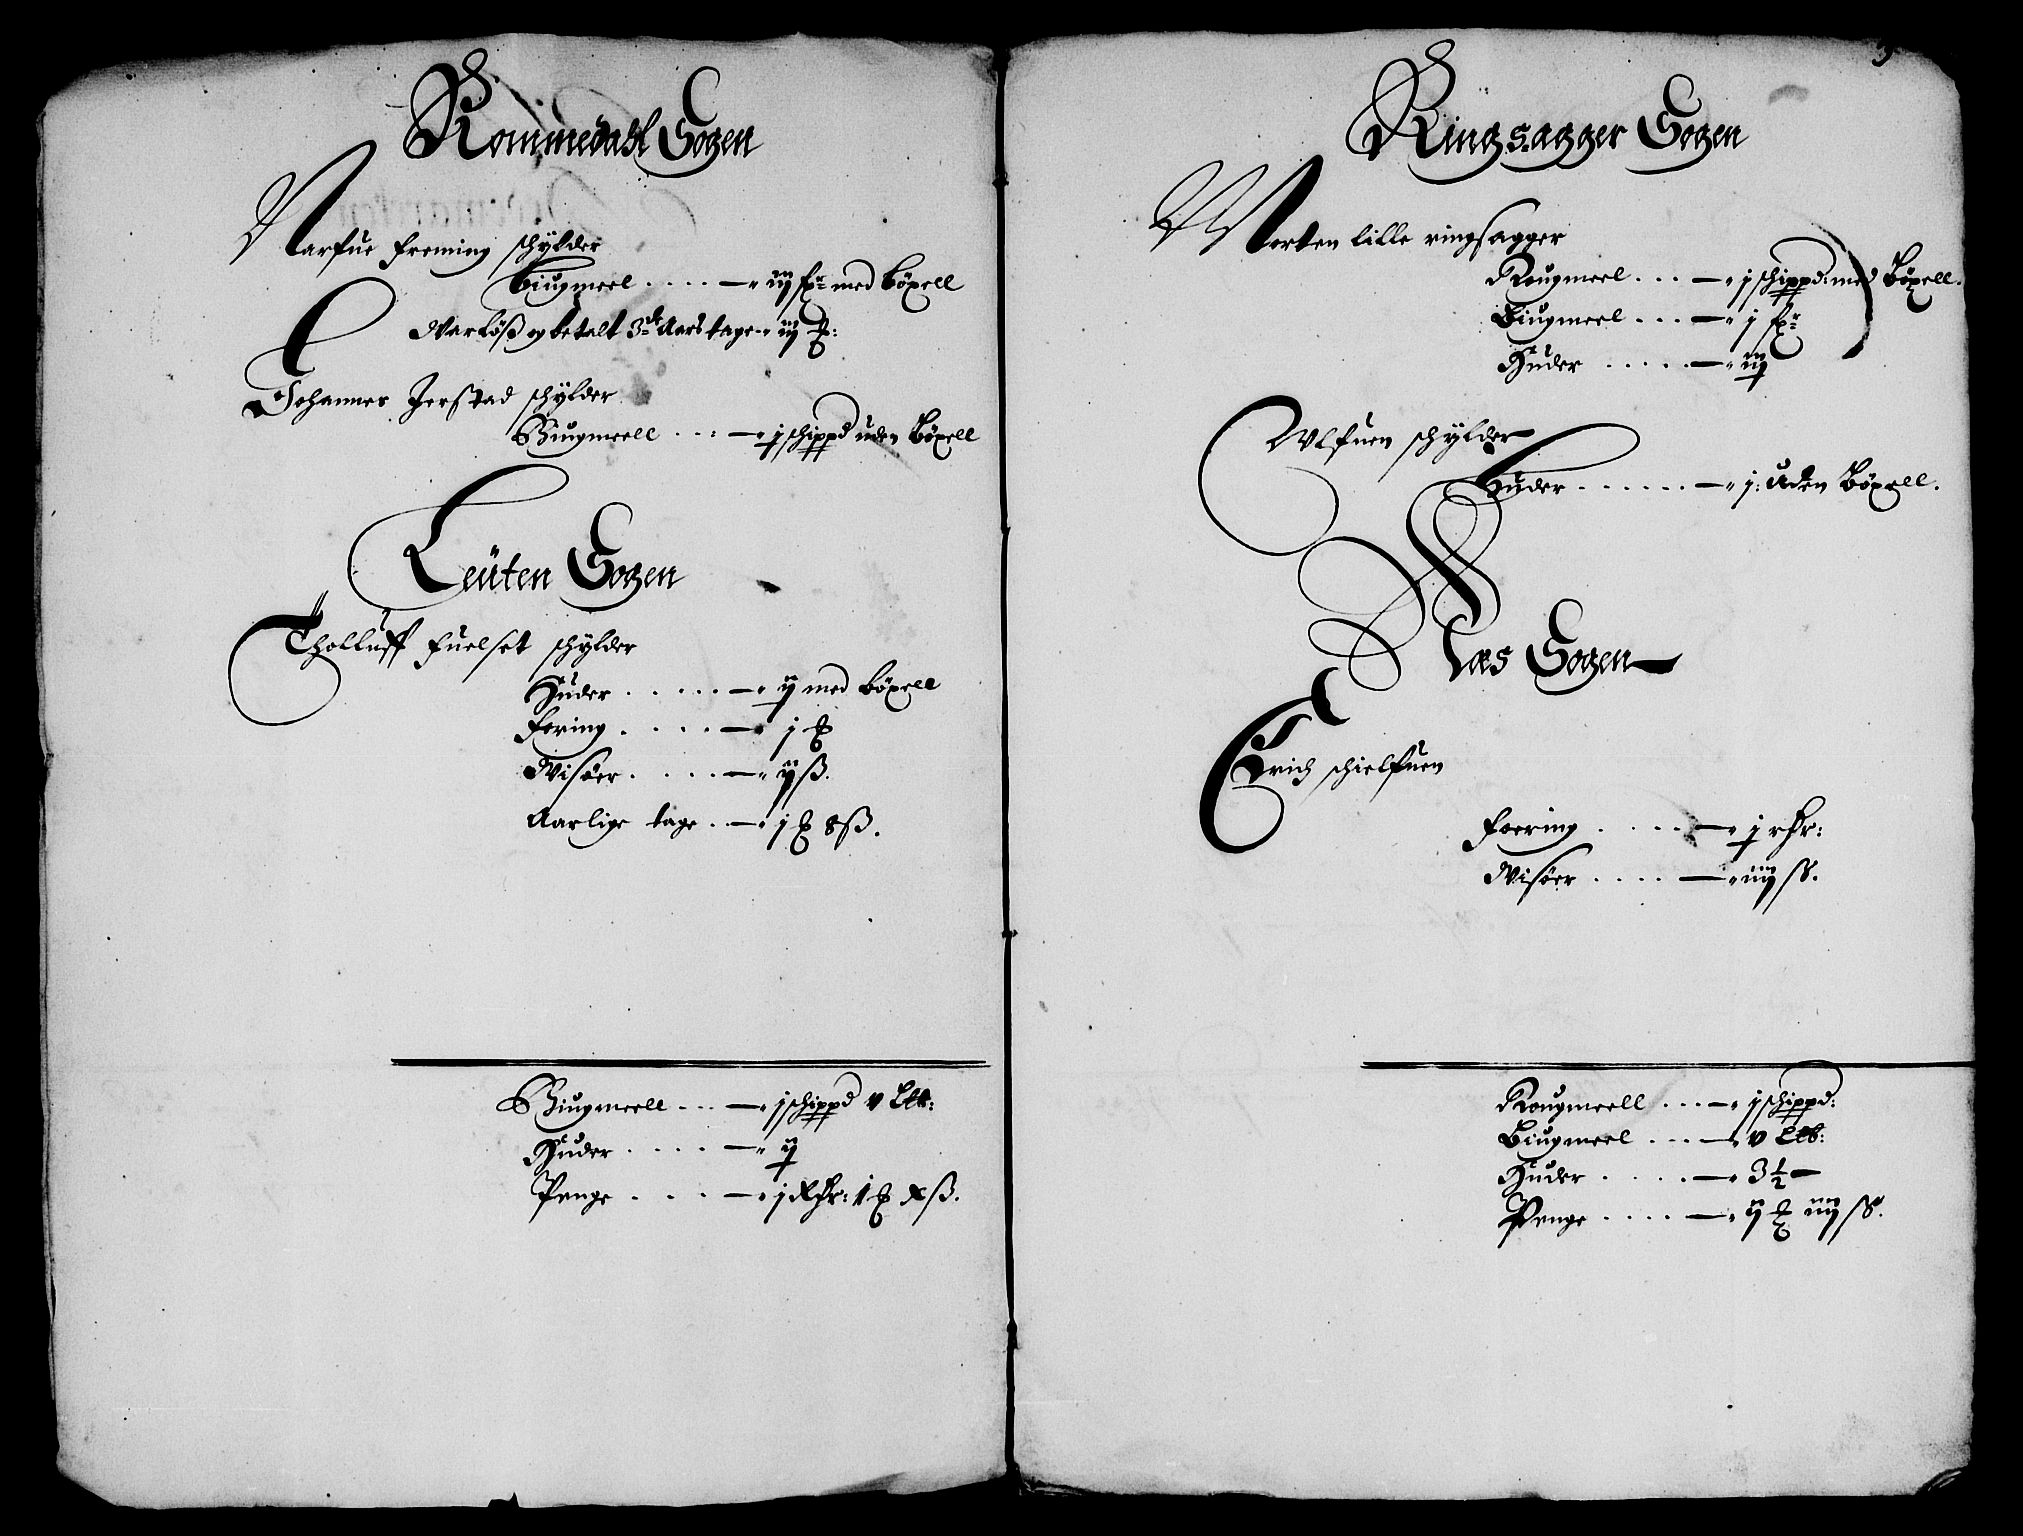 Rommedall Sogen
Narfue Freming schylder
Biugmeel . . . . — iij fr: med böxell
Warløß og betalt 3de Aars tage — iij
Johanner Jerstad schylder
Biugmeell . . . — j schippd uden Böxell
Leüten Sogen
Tholluff Fuelset schylder
Huder . . . . . — ij med böxell
Foring . . . . — j
Wisöer . . . . — ij ß.
Aarlige tage . . — j 8 ß.
Biugmeell . . . — j schippd v Ltb:
Huder . . . . — ij
Penge . . . . — j Rdr: 1 x ß.
3
Ringsagger Sogen
Morten lille ringsagger
Rougmeel . . . — j schippd: med Böxell.
Biugmeel . . . — j fr
Huder . . . . . — iij
Ulfuen schylder
huder . . . . . . — j: uden Böxell.
Næs Sogen
Erich schielfuen
Foering . . . . — j rdr:
Wisöer . . . . — iiij ß.
Rougmeell . . . — j schippd:
Biugmeel . . . — v Ltb:
Huder . . . . — 3 1/2 —
Penge . . . . — ij iiij ß.